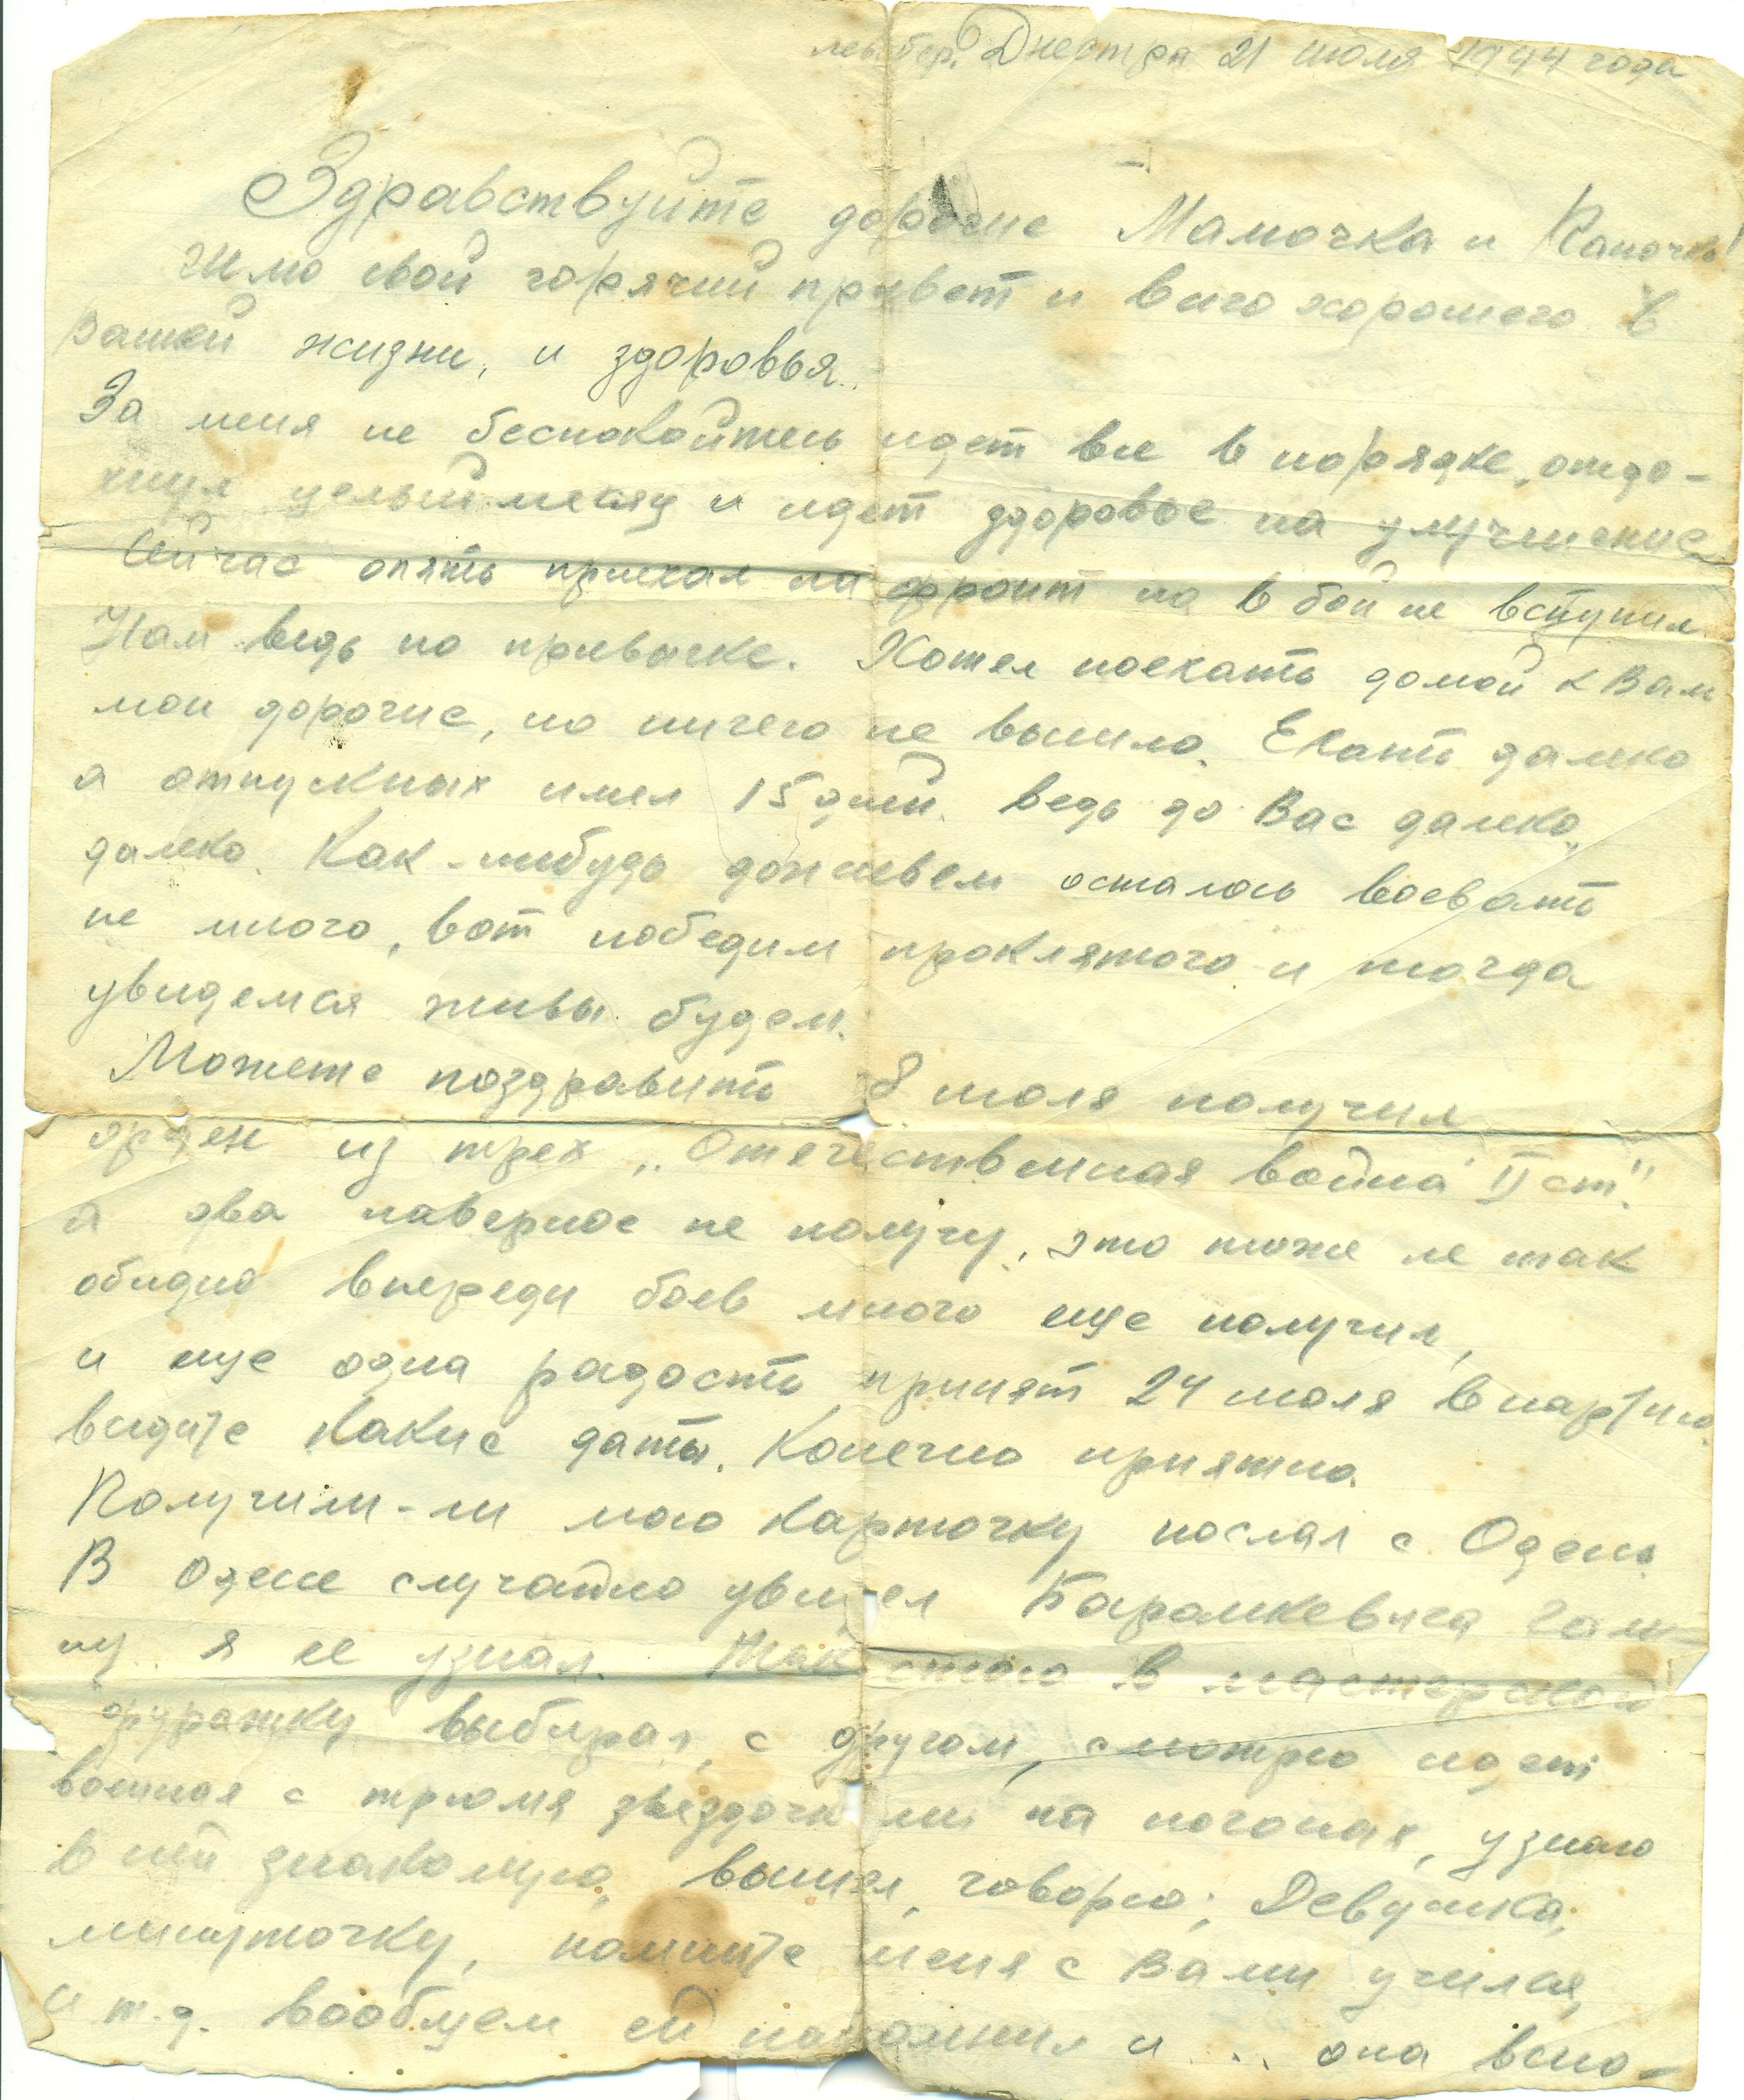 лев. бер. Днестра 21 июля 1944 года
Здравствуйте дорогие Мамочка и Папочка!
Шлю свой горячий привет и всего хорошего в
Вашей жизни, и здоровья.
За меня не беспокойтесь идет все в порядке, отдо-
хнул целый месяц и идет здоровье на улучшение
Сейчас опять приехал на фронт но в бой не вступил.
Нам ведь по привычке. Хотел поехать домой к Вам
мои дорогие, но ничего не вышло. Ехать далеко
а отпускных имел 15 дней. ведь до Вас далеко,
далеко. Как-нибудь доживем осталось воевать
не много, вот победим проклятого и тогда
увидемся живы будем.
Можете поздравить 8 июля получил
орден из трех „Отечественная война II ст."
а два наверное не получу, это тоже не так
обидно впереди боев много еще получил,
и еще одна радость принят 24 июля в партию
видите какие даты. Конечно приятно.
Получили-ли мою карточку послал с Одессы
В Одессе случайно увидел Гали-
ну я ее узнал. Так стою в мастерской
фуражку выбирал, с другом, смотрю идет
военная с тремя звездочками на погонах, узнаю
в ней знакомую, вышел, говорю; Девушка,
минуточку, помните меня с Вами учился,
и т.д. вообщем ей напомнил и ... она вспо-